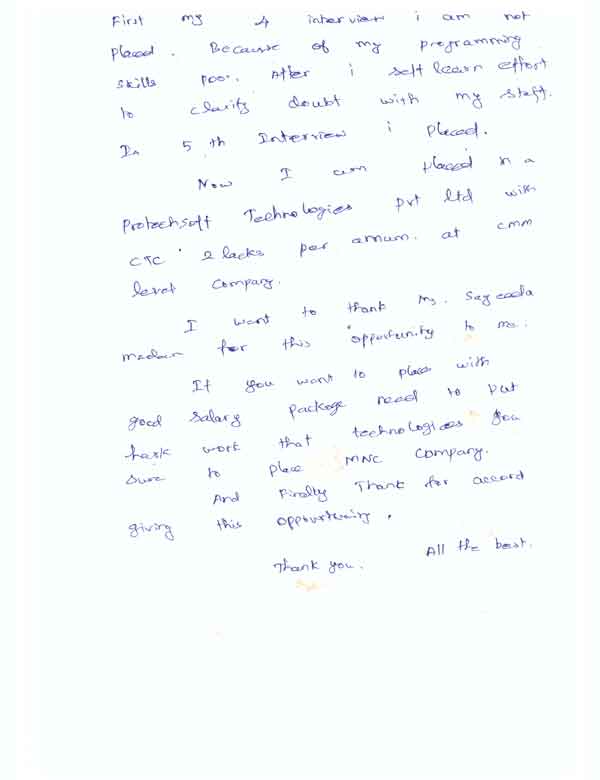 First my 4 interview i am not
placed. Because of my programming
skills poor. After i self learn effort
to clarify doubt with my staff.
In 5 th Interview i placed.
Now I am placed in a
Protechsoft Technologies pvt ltd with
CTC 2 lacks per annum. at cmm
level company.
I want to thank Ms. Sayeeda
madam for this opportunity to me.
If you want to place with
good salary package need to put
hark work that technologies you
sure to place MNC company.
And Finally Thank for accord
giving this opportunity.
All the best.
Thank you.